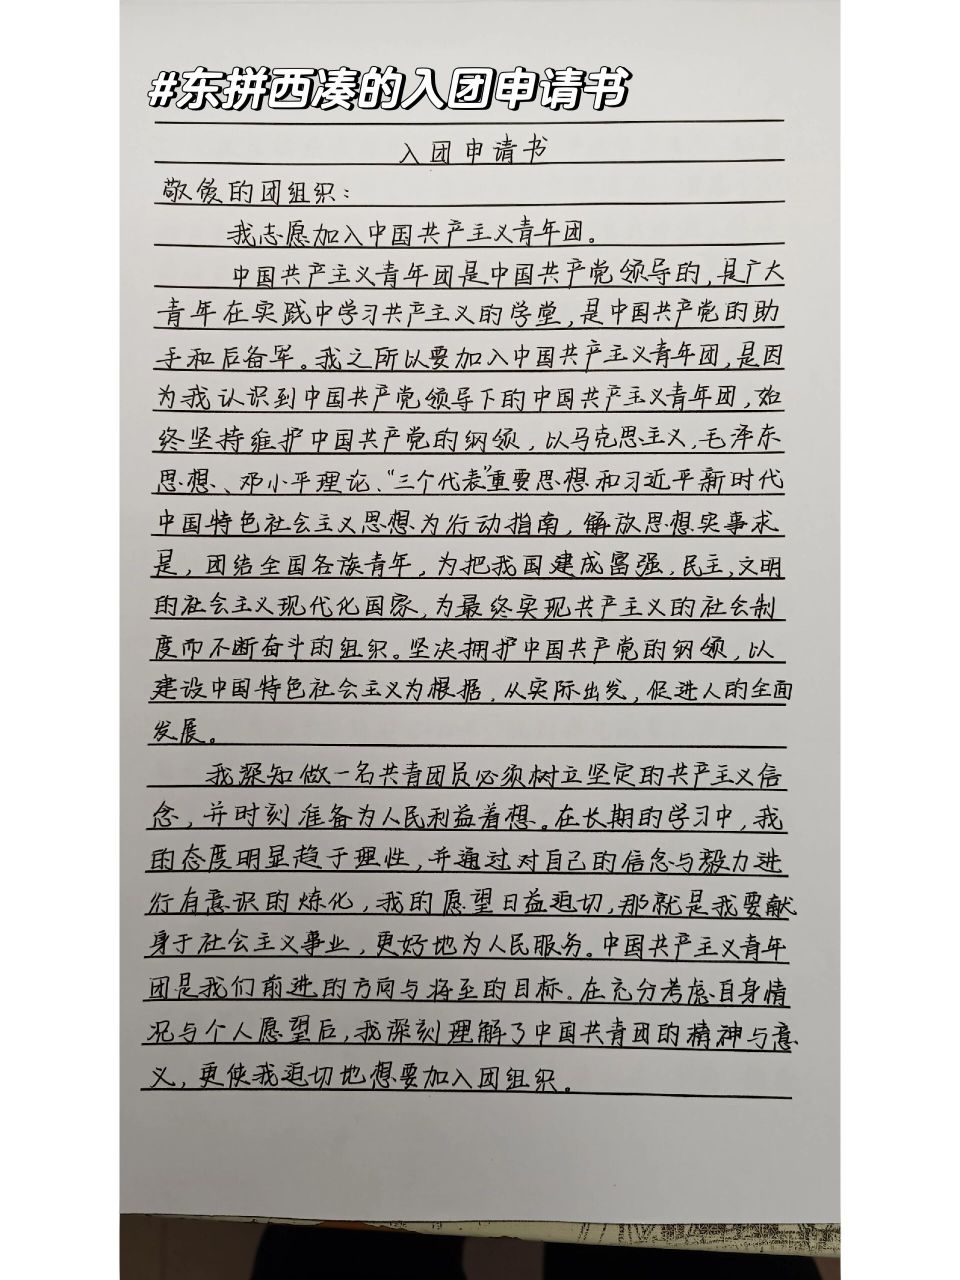 #东拼西凑的入团申请书
入团申请书
敬爱的团组织：
我志愿加入中国共产主义青年团。
中国共产主义青年团是中国共产党领导的，是广大
青年在实践中学习共产主义的学堂，是中国共产党的助
手和后备军。我之所以要加入中国共产主义青年团，是因
为我认识到中国共产党领导下的中国共产主义青年团，始
终坚持维护中国共产党的纲领，以马克思主义，毛泽东
思想、邓小平理论、“三个代表”重要思想和习近平新时代
中国特色社会主义思想为行动指南，解放思想实事求
是，团结全国各族青年，为把我国建成富强，民主，文明
的社会主义现代化国家，为最终实现共产主义的社会制
度而不断奋斗的组织。坚决拥护中国共产党的纲领，以
建设中国特色社会主义为根据，从实际出发，促进人的全面
发展。
我深知做一名共青团员必须树立坚定的共产主义信
念，并时刻准备为人民利益着想。在长期的学习中，我
的态度明显趋于理性，并通过对自己的信念与毅力进
行有意识的炼化，我的愿望日益迫切，那就是我要献
身于社会主义事业，更好地为人民服务。中国共产主义青年
团是我们前进的方向与将至的目标。在充分考虑自身情
况与个人愿望后，我深刻理解了中国共青团的精神与意
义，更使我迫切地想要加入团组织。